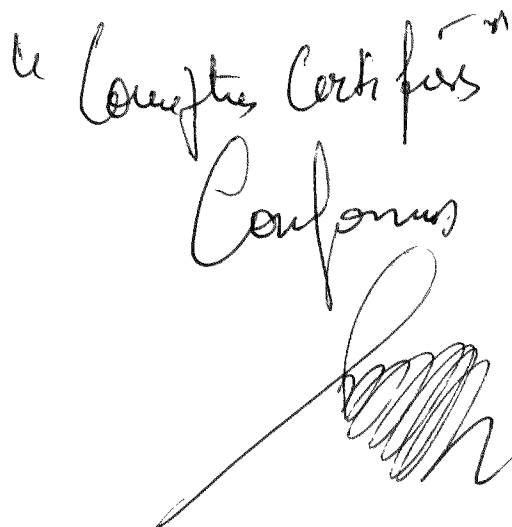 "Comptes Certifiés"
Conformes